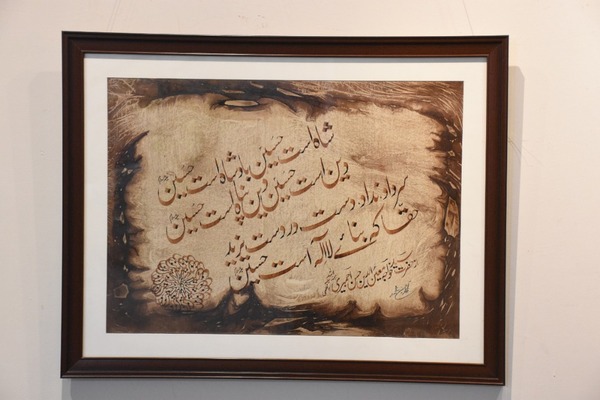 شاہ است حسینؑ بادشاہ است حسینؑ
دین است حسینؑ دین پناہ است حسینؑ
سر داد نداد دست در دست یزید
حقا کہ بنائے لا الٰہ است حسینؑ
حضرت خواجہ معین الدین حسن اجمیری